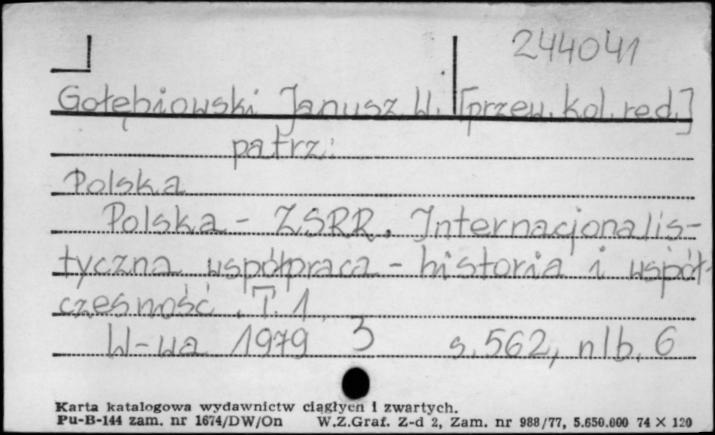 244041
Gołębiowski Janusz W. [przew. kol. red.]
patrz:
Polska
Polska - ZSRR. Internacjonalis-
tyczna współpraca - historia i współ-
czesność. T. 1.
W-wa 1979 3 s. 562, nlb. 6
Karta katalogowa wydawnictw ciągłych i zwartych.
Pu-B-144 zam. nr 1674/DW/On W.Z.Graf. Z-d 2, Zam. nr 988/77, 5.650.000 74 X 120